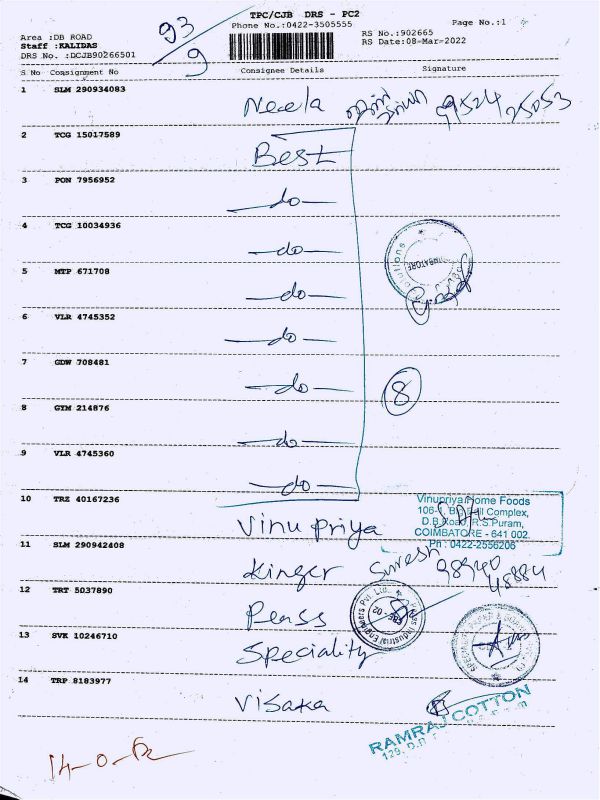 TPC/CJB DRS - PC2
Phone No.:0422-3505555
Page No.:1
93
9
Area :DB ROAD
Staff :KALIDAS
DRS No. :DCJB90266501
RS No.:902665
RS Date:08-Mar-2022
S No Consignment No Consignee Details Signature
1 SLM 290934083 Neela 99524 25053
2 TCG 15017589 Best
3 PON 7956952 -do-
4 TCG 10034936 -do-
5 MTP 671708 -do-
6 VLR 4745352 -do-
7 GDW 708481 -do-
8
8 GYM 214876 -do-
9 VLR 4745360 -do-
10 TRZ 40167236 Vinu priya
Vinupriya Home Foods
Complex,
D.B. Road, R.S.Puram,
COIMBATORE - 641 002.
Ph : 0422-2556206
11 SLM 290942408 Kinger Suresh 98940 48884
12 TRT 5037890 Penss
Industrial Engineers Pvt. Ltd.
13 SVK 10246710 Speciality
14 TRP 8183977 Visaka
RAMRAJ COTTON
14-0-